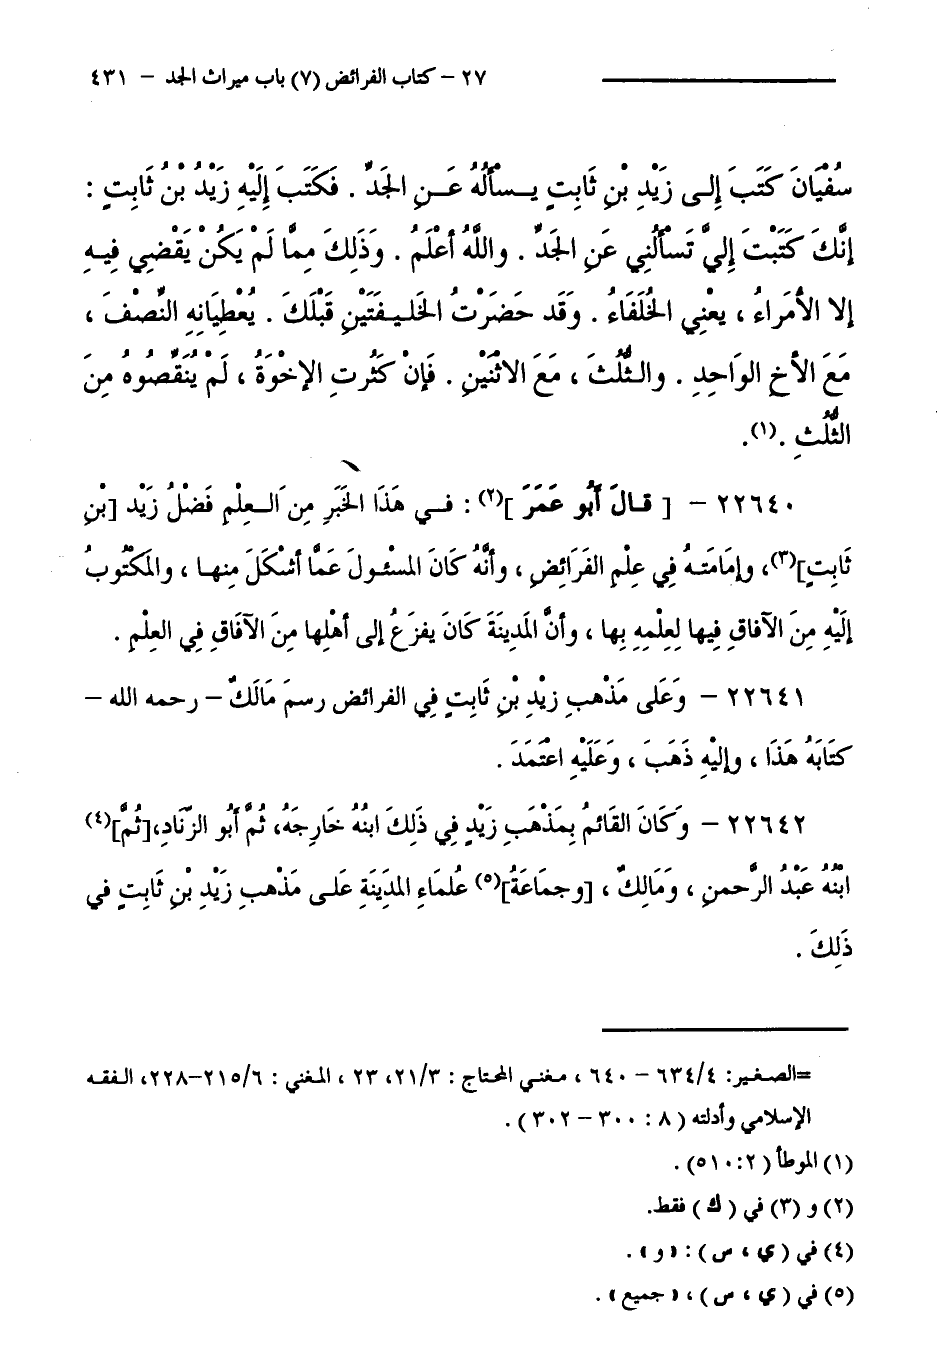 ٢٧ – كتاب الفرائض (٧) باب ميراث الجد – ٤٣١
سُفْيَانَ كَتَبَ إِلى زَيْدِ بْنِ ثَابِتٍ يسألُهُ عَنِ الجَدِّ . فَكَتَبَ إِلَيْهِ زَيْدُ بْنُ ثَابِتٍ :
إنَّكَ كَتَبْتَ إِليَّ تَسألُنِي عَنِ الجَدِّ . واللَّهُ أعْلَمُ . وَذَلِكَ مِمَّا لَمْ يَكُنْ يَقْضِي فِيهِ
إلا الأمَرَاءُ ، يعْنِي الخُلَفَاءُ . وَقَد حَضَرْتُ الخَلِيفَتَيْنِ قَبْلَكَ . يُعْطِيَانِهِ النِّصْفَ ،
مَعَ الأخِ الوَاحِدِ . والثُّلُثَ ، مَعَ الاثْنَيْنِ . فَإنْ كَثُرتِ الإخْوَةُ ، لَمْ يُنَقِّصُوهُ مِنَ
الثُّلُثِ .(١).
٢٢٦٤٠ – [ قالَ أَبُو عَمَرَ ](٢) : في هَذَا الخَبَرِ مِنَ العِلْمِ فَضْلُ زَيْد [بْنِ
ثَابِتٍ](٣)، وإمَامَتهُ فِي عِلْمِ الفَرَائِضِ ، وأنَّهُ كَانَ المسْئولَ عَمَّا أشْكَلَ مِنها ، والمَكْتُوبُ
إلَيْهِ مِنَ الآفاقِ فِيها لِعِلْمِهِ بِها ، وأنَّ المَدِينَةَ كَانَ يفزَعُ إلى أهْلِها مِنَ الآفَاقِ فِي العِلْمِ .
٢٢٦٤١ – وَعَلى مَذْهبِ زيْدِ بْنِ ثَابِتٍ فِي الفرائض رسمَ مَالَكٌ – رحمه الله –
كتَابَهُ هَذَا ، وإليْهِ ذَهَبَ ، وَعَلَيْهِ اعْتَمَدَ .
٢٢٦٤٢ – وَكَانَ القَائمُ بِمَذْهَبِ زَيْدٍ فِي ذَلِكَ ابنُهُ خَارِجَهُ، ثُمَّ أبُو الزِّنَادِ،[ثُمَّ](٤)
ابْنُهُ عَبْدُ الرَّحمنِ ، وَمَالِكٌ ، [وجمَاعَةُ](٥) عُلمَاءِ المَدِينَةِ عَلى مَذْهبِ زَيْدِ بْنِ ثَابِتٍ فِي
ذَلِكَ .
=الصغير: ٦٣٤/٤ – ٦٤٠ ، مغني المحتاج : ٢١/٣، ٢٣ ، المغني : ٢١٥/٦–٢٢٨، الفقه
الإسلامي وأدلته ( ٨ : ٣٠٠ – ٣٠٢ ) .
(١) الموطأ ( ٢ : ٥١٠) .
(٢) و (٣) في ( ك ) فقط.
(٤) في ( ي ، س ) : « و » .
(٥) في ( ي ، س ) ، « جميع » .